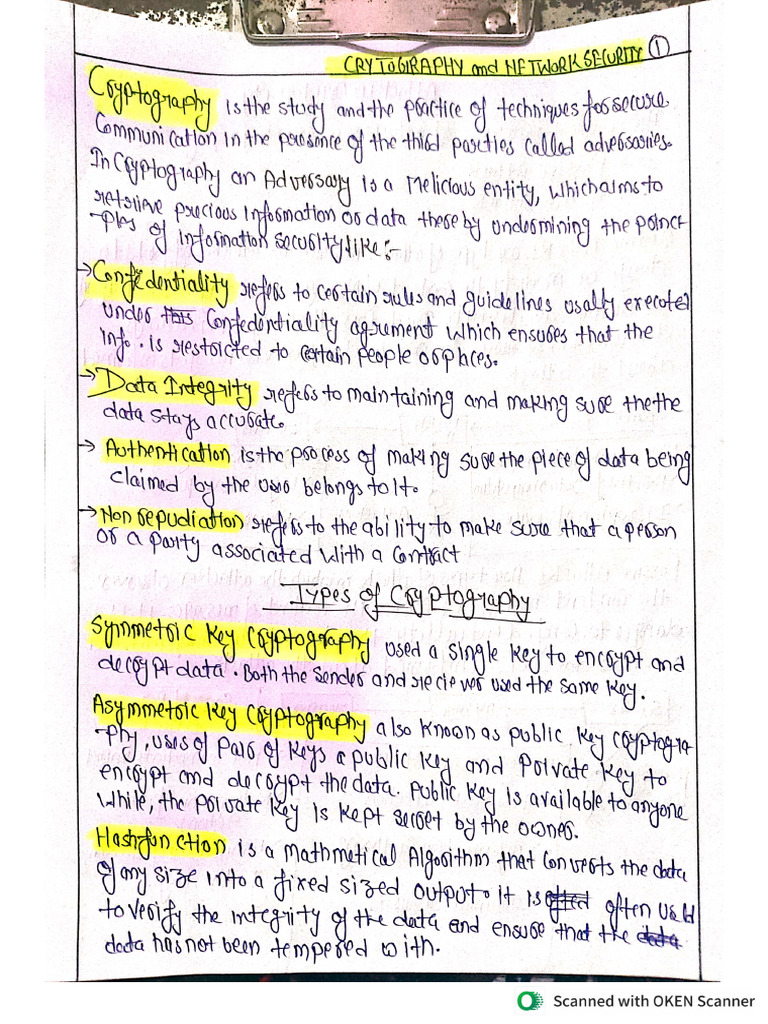 CRYTOGRAPHY and NETWORK SECURITY 1
Cryptography is the study and the practice of techniques for secure
Communication in the presence of the third parties called adversaries.
In Cryptography an Adversary is a Melicious entity, which aims to
retrieve precious information or data thereby undermining the princi
-ples of information security like:-
→ Confidentiality refers to certain rules and guidelines usally executed
under this Confedentiality agreement which ensures that the
info. is restricted to certain people or places.
→ Data Integrity refers to maintaining and making sure the the
data stays accurate.
→ Authentication is the process of making sure the piece of data being
claimed by the user belongs to it.
→ Non repudiation refers to the ability to make sure that a person
or a party associated with a contract
Types of Cryptography
Symmetric Key Cryptography used a single key to encrypt and
decrypt data. Both the sender and reciever used the same key.
Asymmetric Key Cryptography also known as public key cryptogra
-phy, uses of pair of keys a public key and private key to
encrypt and decrypt the data. public key is available to anyone
While, the private key is kept secret by the owner.
Hashfunction is a Mathmetical Algorithm that converts the data
of any size into a fixed sized output. it is often used
to verify the integrity of the data and ensure that the data
data has not been tempered with.
Scanned with OKEN Scanner